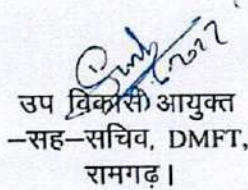 उप विकास आयुक्त
–सह–सचिव, DMFT,
रामगढ़।